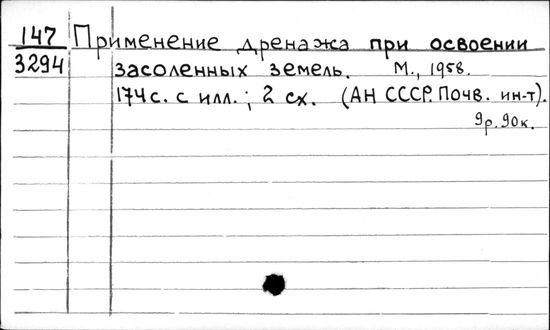 147 Применение дренажа при освоении
3294 засоленных земель. М., 1958.
174с. с илл.; 2 сх. (АН СССР. Почв. ин-т).
9р. 90к.